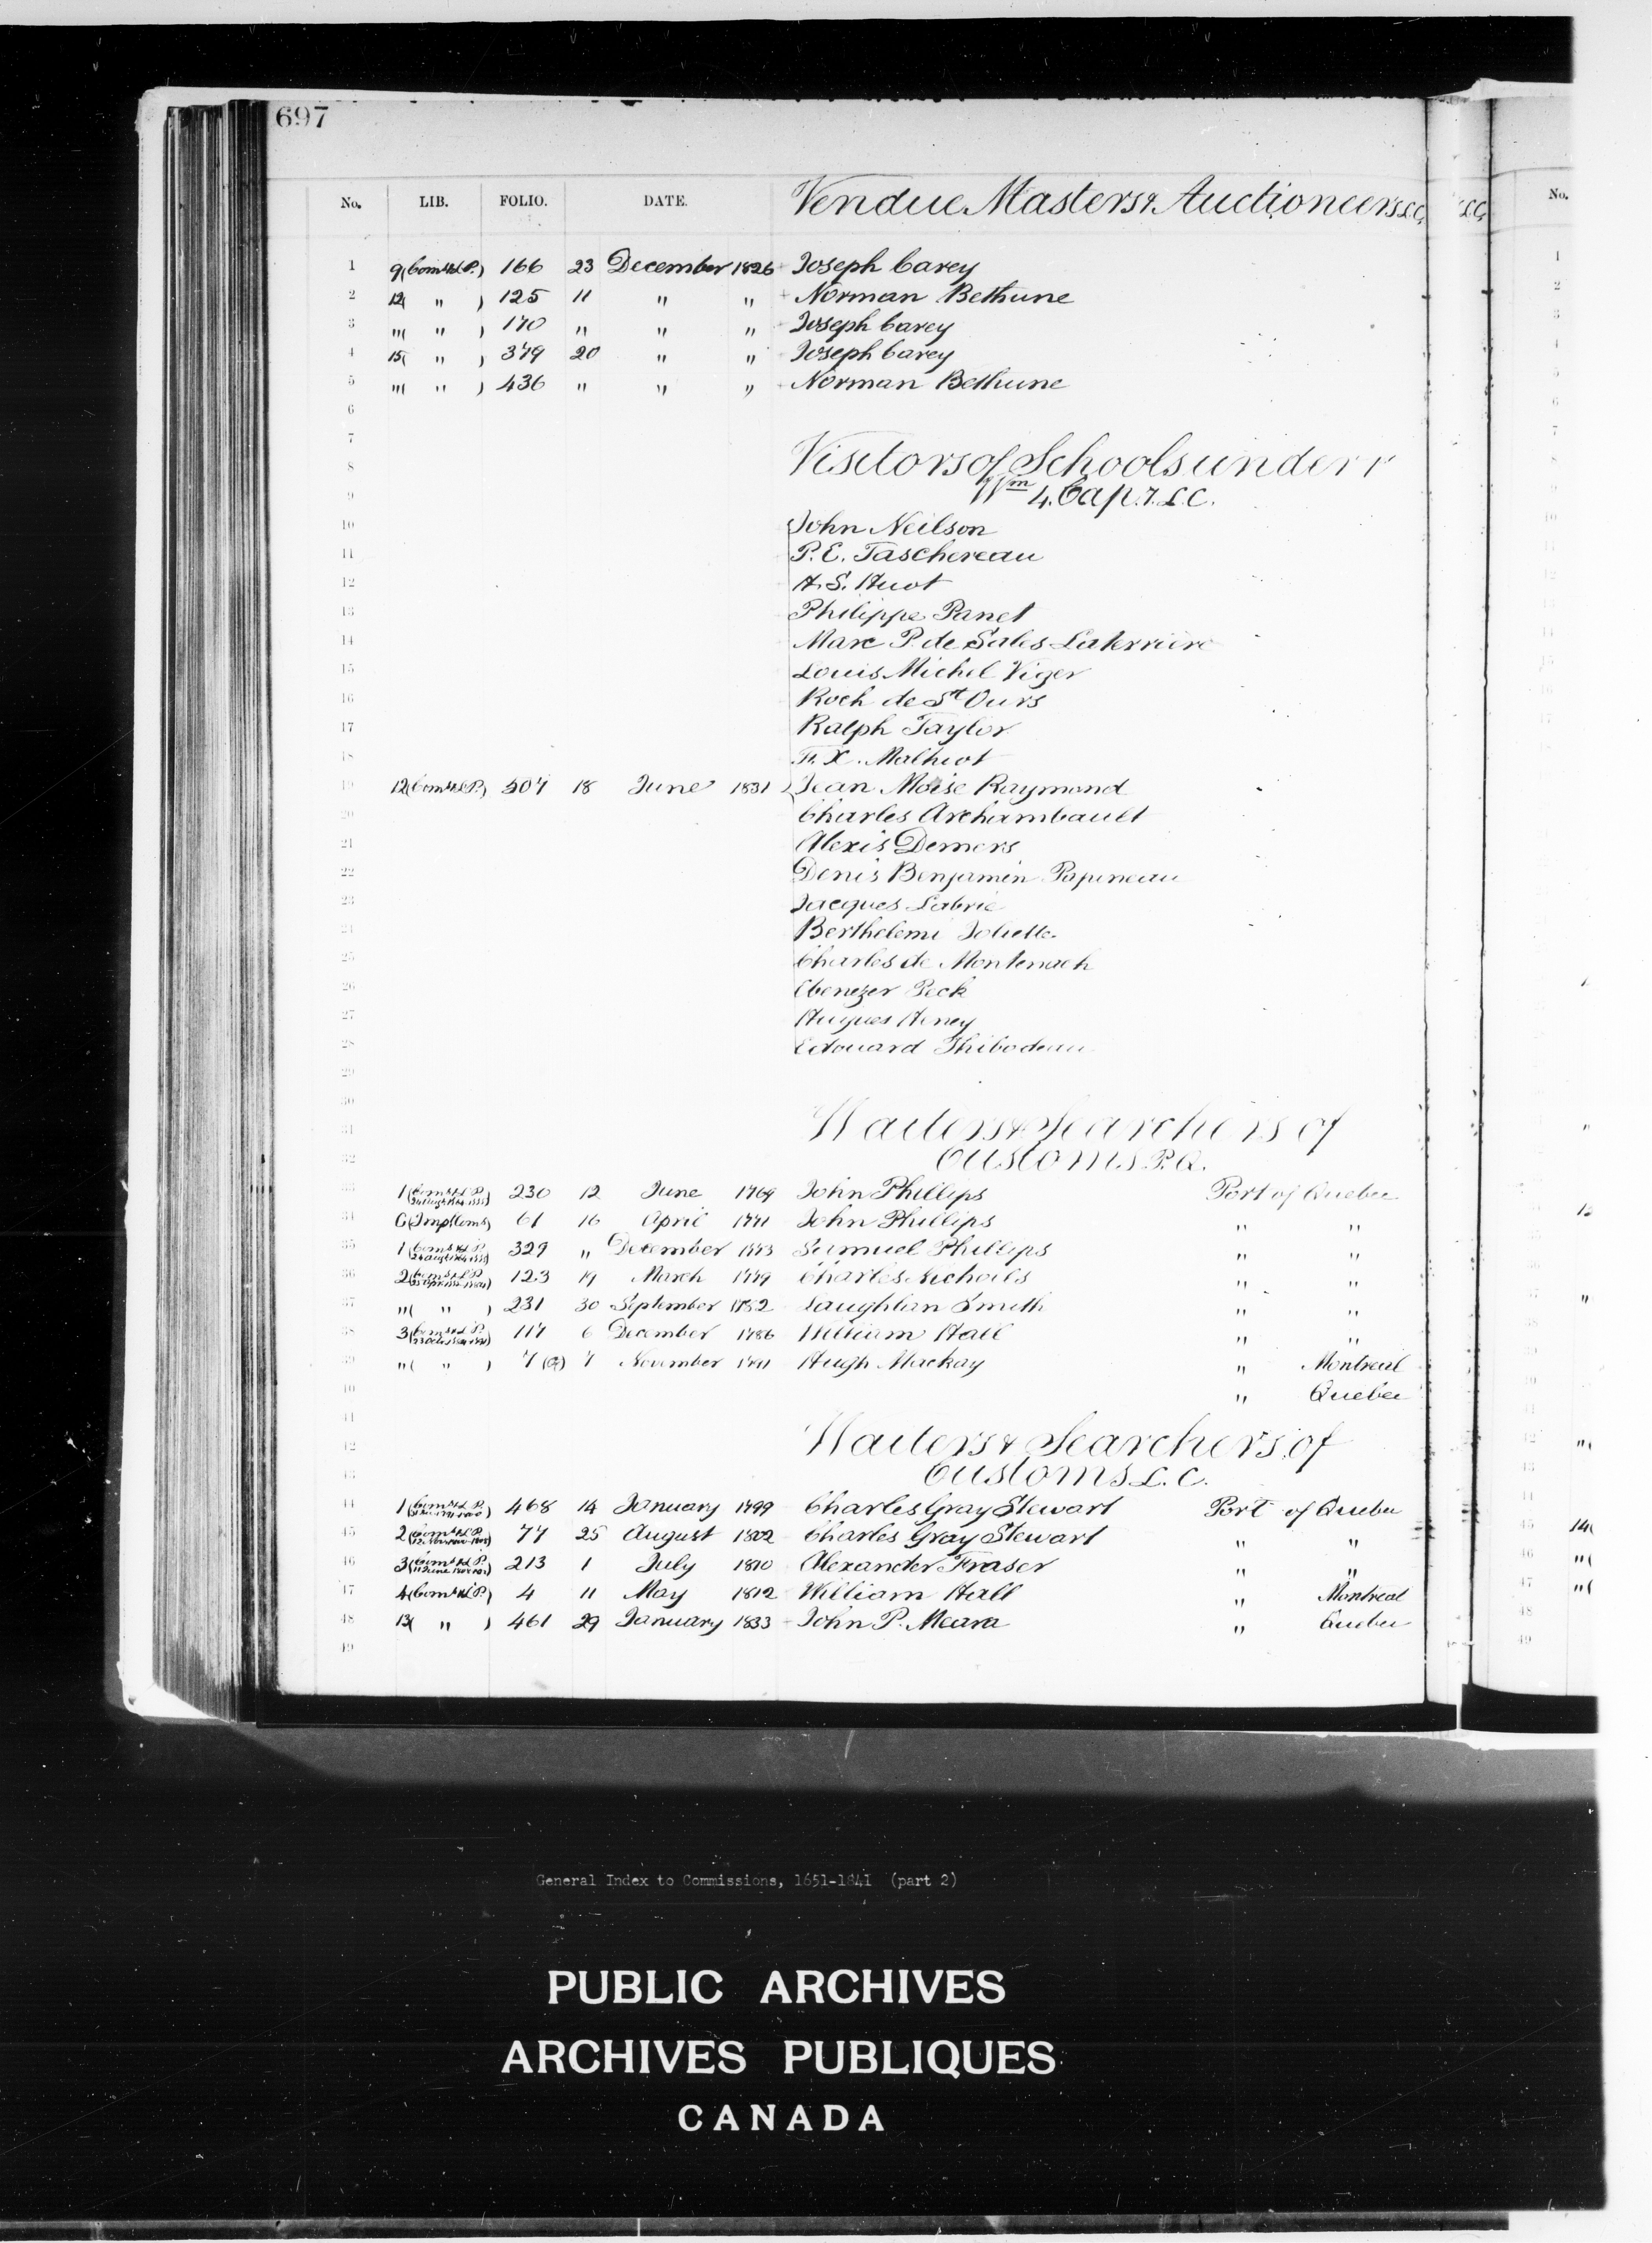 697
No. LIB. FOLIO. DATE. Vendue Masters & Auctioneers L.C.
1 9 (Coms & L.P.) 166 23 December 1826 Joseph Carey
2 12 ( " ) 125 11 " " Norman Bethune
3 " ( " ) 170 " " " Joseph Carey
4 15 ( " ) 379 20 " " Joseph Carey
5 " ( " ) 436 " " " Norman Bethune
6
7 Visitors of Schools under
8
9 Wm 4. Cap. 7. L.C.
10 John Neilson
11 P. E. Taschereau
12 H. S. Huot
13 Philippe Panet
14 Marc P. de Sales Laterriere
15 Louis Michel Viger
16 Roch de St Ours
17 Ralph Taylor
18 F. X. Malhiot
19 12 (Coms & L.P.) 507 18 June 1831 Jean Moise Raymond
20 Charles Archambault
21 Alexis Demers
22 Denis Benjamin Papineau
23 Jacques Labrie
24 Berthelemi Joliette
25 Charles de Montenach
26 Ebenezer Peck
27 Hugues Heney
28 Edouard Thibodeau
29
30
31 Waiters & Searchers of
32 Customs P.Q.
33 1 (Coms & L.P.) 230 12 June 1769 John Phillips Port of Quebec
34 6 (Imp Coms) 61 16 April 1771 John Phillips " "
35 1 (Coms & L.P.) 329 " December 1773 Samuel Phillips " "
36 2 (Coms & L.P.) 123 19 March 1779 Charles Nicholls " "
37 " ( " ) 231 30 September 1782 Laughlan Smith " "
38 3 (Coms & L.P.) 117 6 December 1786 William Hall " "
39 " ( " ) 7 (a) 7 November 1791 Hugh Mackay " Montreal
40 " Quebec
41
42 Waiters & Searchers of
43 Customs L.C.
44 1 (Coms & L.P.) 468 14 January 1799 Charles Gray Stewart Port of Quebec
45 2 (Coms & L.P.) 77 25 August 1802 Charles Gray Stewart " "
46 3 (Coms & L.P.) 213 1 July 1810 Alexander Fraser " "
47 4 (Coms & L.P.) 4 11 May 1812 William Hall " Montreal
48 13 ( " ) 461 29 January 1833 John P. Meara " Quebec
49
General Index to Commissions, 1651-1841 (part 2)
PUBLIC ARCHIVES
ARCHIVES PUBLIQUES
CANADA